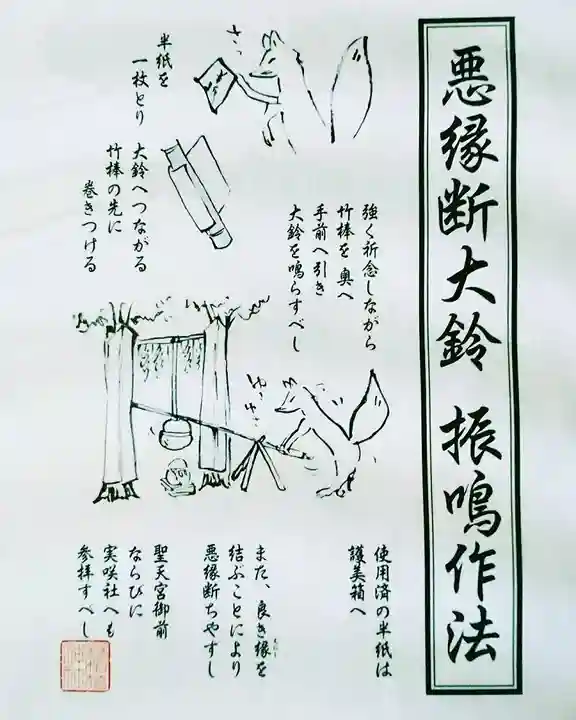 悪縁断大鈴 振鳴作法
さっ
半紙を
一枚とり
大鈴へつながる
竹棒の先に
巻きつける
強く祈念しながら
竹棒を奥へ
手前へ引き
大鈴を鳴らすべし
使用済の半紙は
護美箱へ
また、良き縁を
結ぶことにより
悪縁断ちやすし
聖天宮御前
ならびに
実咲社へも
参拝すべし